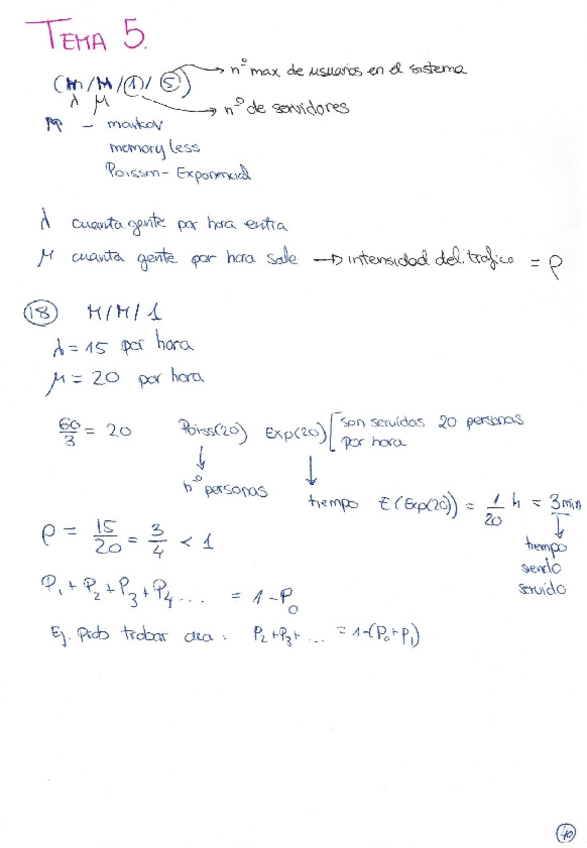 TEMA 5.
(M/M/1/5)
→ nº max de usuarios en el sistema
λ μ
→ nº de servidores
M - markov
memory less
Poisson - Exponencial
λ cuanta gente por hora entra
μ cuanta gente por hora sale → intensidad del trafico = ρ
18 M/M/1
λ = 15 por hora
μ = 20 por hora
60/3 = 20 Poiss(20) Exp(20) [son servidas 20 personas
por hora
↓ nº personas
↓ tiempo E(Exp(20)) = 1/20 h = 3 min
↓ tiempo
siendo
servido
ρ = 15/20 = 3/4 < 1
P₁ + P₂ + P₃ + P₄ ... = 1 - P₀
Ej. prob trobar cua : P₂+P₃+ ... = 1-(P₀+P₁)
40